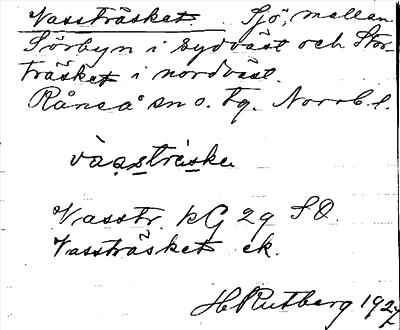 Vassträsket Sjö, mellan
Sörbyn i sydväst och Stor-
träsket i nordväst.
Råneå sn o. tg. Norrb. l.
Vasstr. kG 29 SO.
Vassträsket ek.
H Rutberg 1927